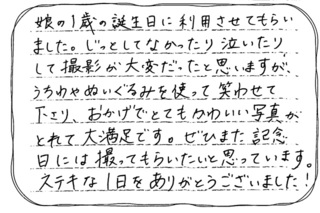 娘の1歳の誕生日に利用させてもらい
ました。じっとしてなかったり泣いたり
して撮影が大変だったと思いますが、
うちわやぬいぐるみを使って笑わせて
下さり、おかげでとてもかわいい写真が
とれて大満足です。ぜひまた記念
日には撮ってもらいたいと思っています。
ステキな1日をありがとうございました!